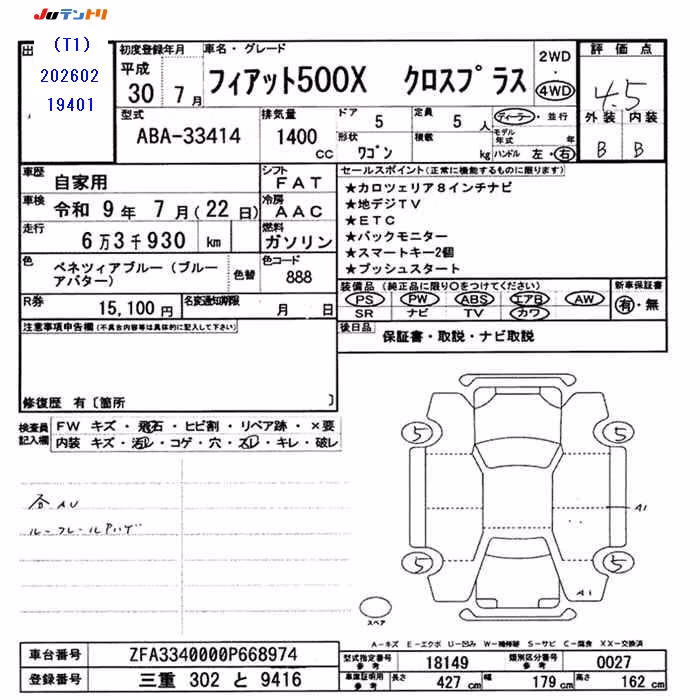 JUテントリ
出
(T1)
202602
19401
初度登録年月
平成
30 7月
車名・グレード
フィアット500X クロスプラス
2WD
・
4WD
評価点
4.5
外装 内装
B B
型式
ABA-33414
排気量
1400
cc
ドア
5
定員
5人
形状
ワゴン
積載
kg
ディーラー・並行
モデル年式 年
ハンドル 左・右
車歴
自家用
シフト
FAT
車検
令和 9年 7月(22日)
冷房
AAC
走行
6万3千930 km
燃料
ガソリン
色
ベネツィアブルー(ブルーアバター)
色替
色コード
888
R券
15,100円
名変通知期限
月 日
セールスポイント(正常に機能するものに限ります)
★カロツェリア8インチナビ
★地デジTV
★ETC
★バックモニター
★スマートキー2個
★プッシュスタート
装備品(純正品に限り○をつけてください)
PS PW ABS エアB AW
SR ナビ TV カワ
新車保証書
有・無
後日品
保証書・取説・ナビ取説
注意事項申告欄(不具合内容等は具体的に記入して下さい)
修復歴 有〔箇所 〕
検査員記入欄
FW キズ・飛石・ヒビ割・リペア跡・×要
内装 キズ・汚レ・コゲ・穴・スレ・キレ・破レ
各AU
ルーフレールPハゲ
5 5
5 5
A1
A1
スペア
A-キズ E-エクボ U-凹み W-補修跡 S-サビ C-腐食 XX-交換済
車台番号
ZFA3340000P668974
登録番号
三重 302 と 9416
型式指定番号
参考
18149
類別区分番号
参考
0027
車庫証明用
参考
長さ
427 cm
幅
179 cm
高さ
162 cm